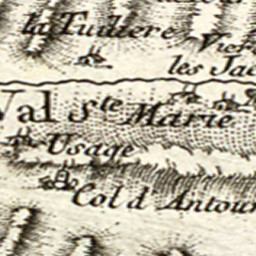 la Tuiliere
les Jac
Val S.te Marie
Usage
Col d'Antour